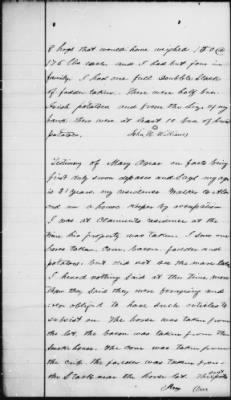 8 hogs that would have weighed 150 @
175 lbs each and I had but four in
family. I had one full double Stack
of fodder taken. There were half bus.
Irish potatoes and from the Size of my
bank there were at least 10 bus of Sweet
potatoes. John W Williams
Testimony of Mary Amar in facts being
first duly sworn deposes and Says my age
is 21 years, my residence Walker Co Ala
and am a house Keeper by occupation
I was at Claimants residence at the
time his property was taken. I saw one
horse taken, Corn, Bacon, fodder and
potatoes. But did not see the mare taken
I heard nothing Said at the time more
than they Said they were foraging and
were obliged to have such articles to
subsist on. The horse was taken from
the lot, the bacon was taken from the
smoke house. The corn was taken from
the crib the fodder was taken from
the Stack near the horse lot. The